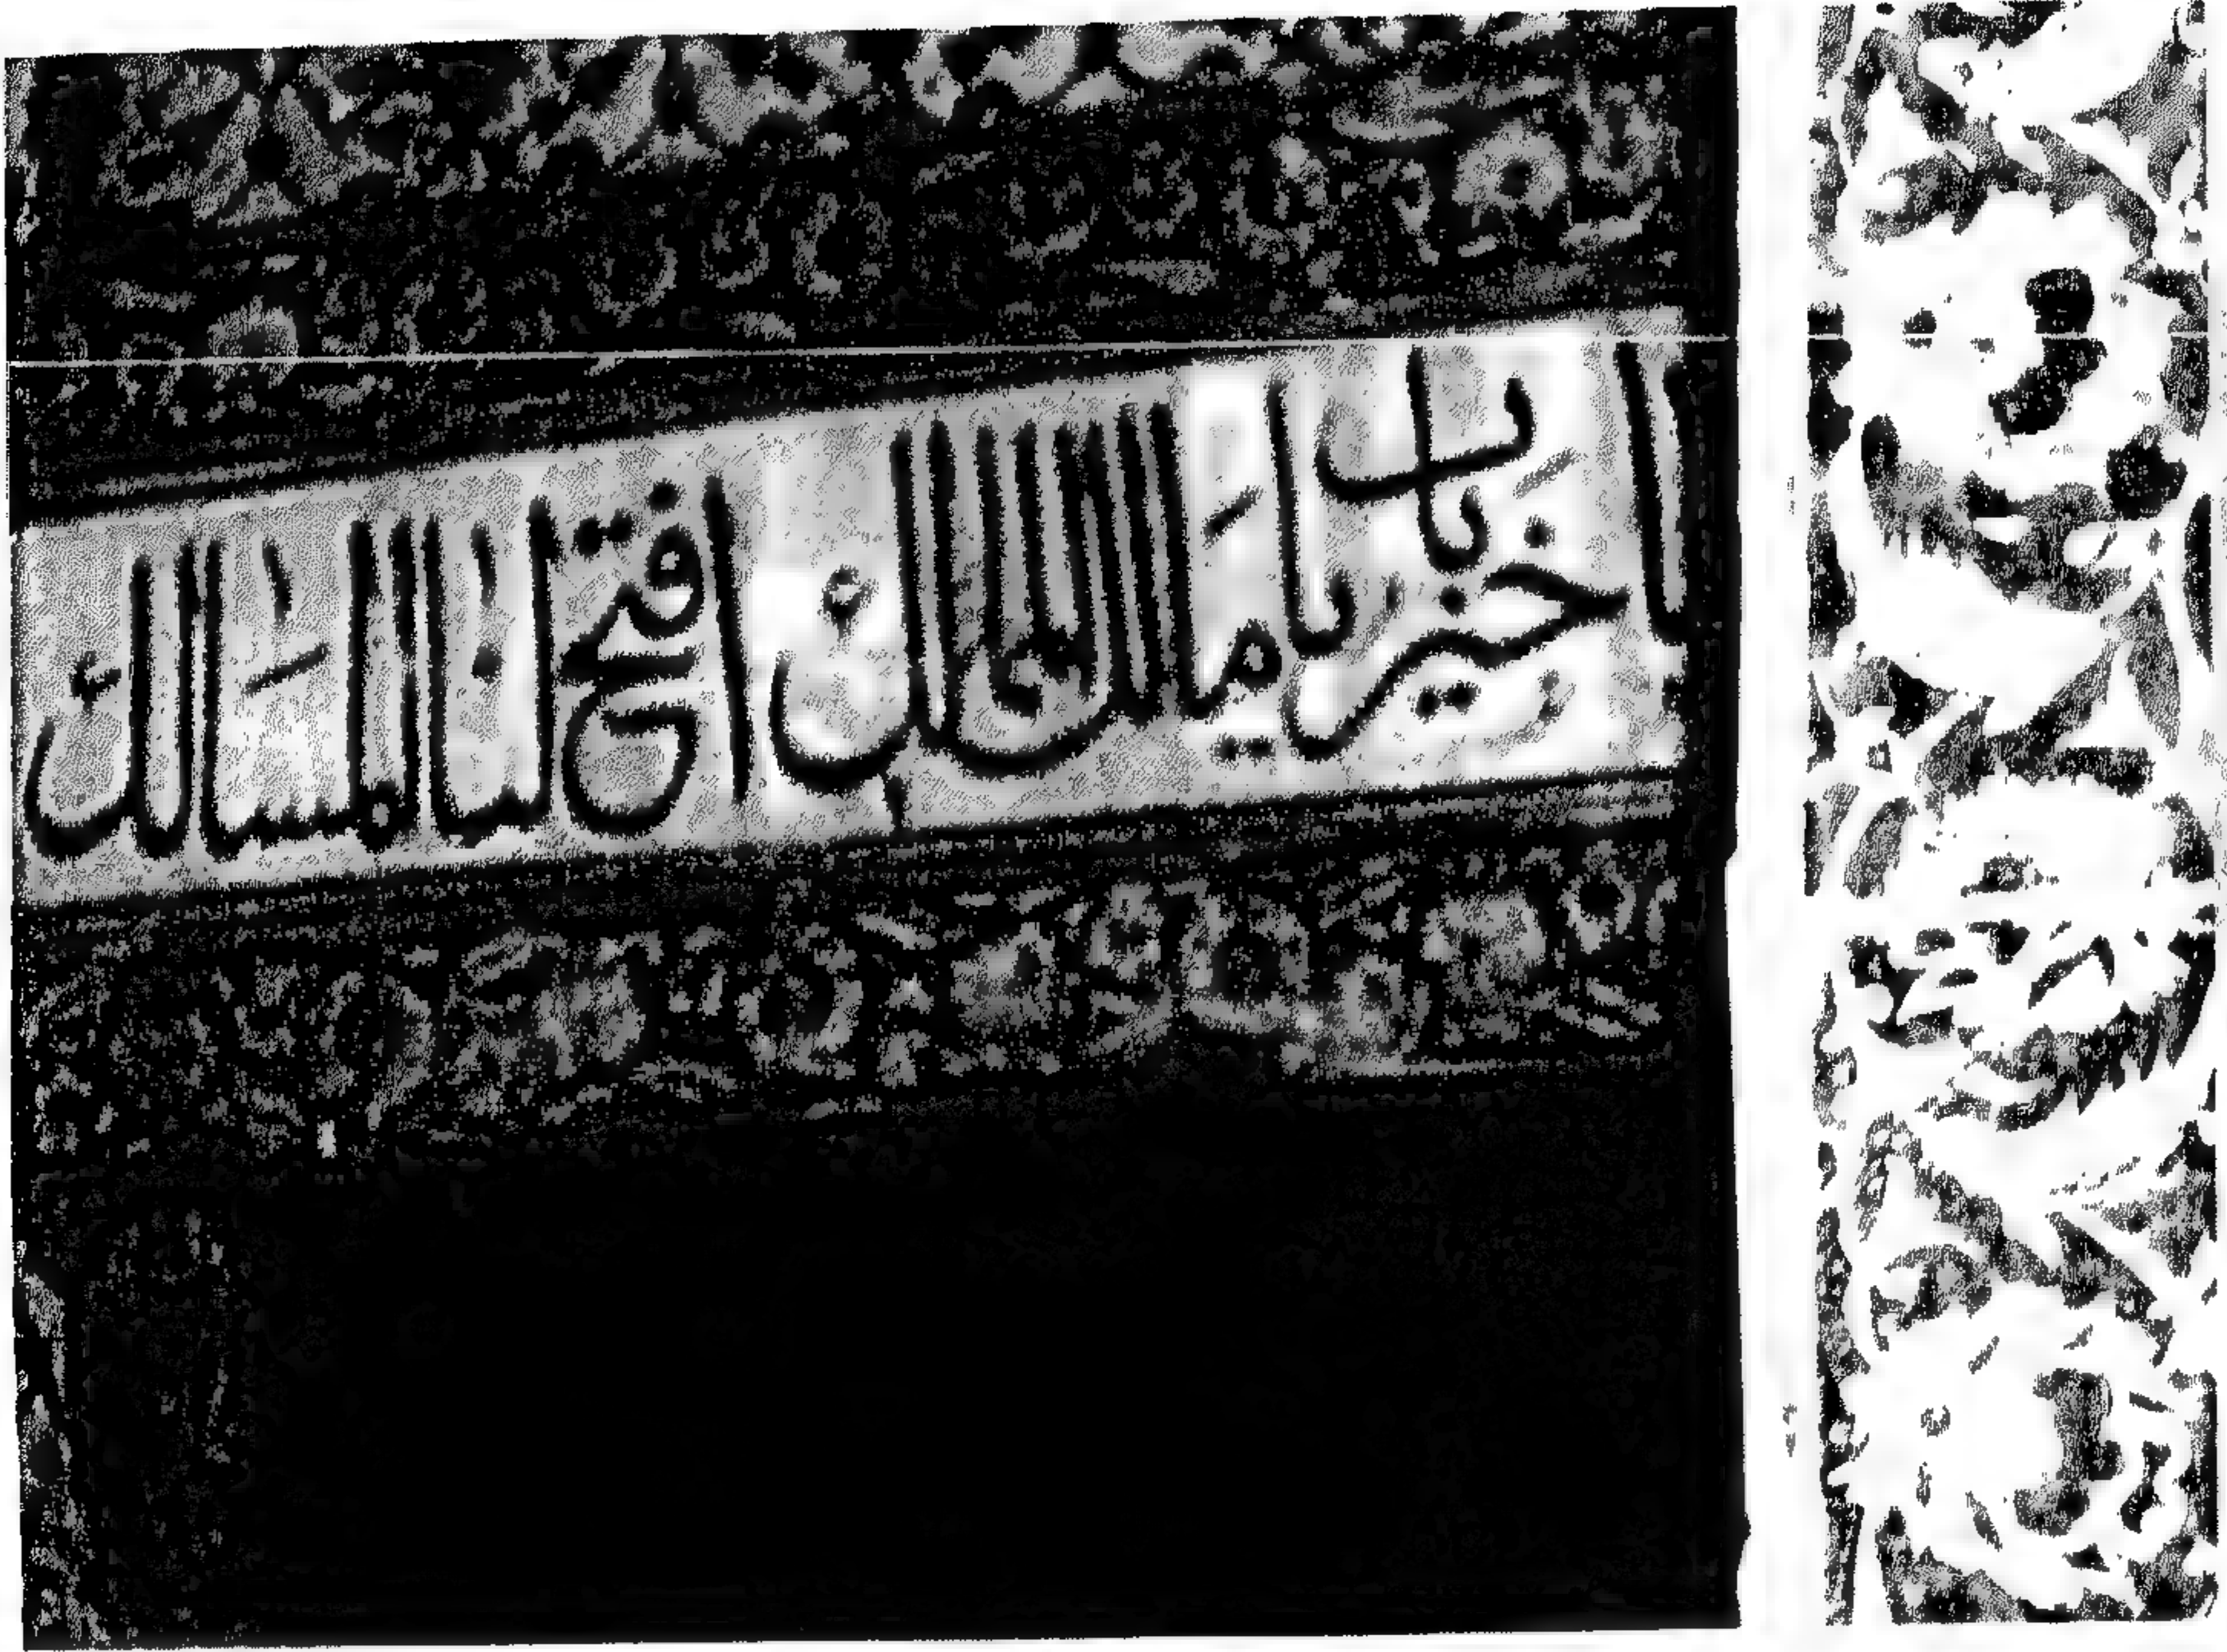 يا خير يا مالك الممالك افتح لنا المسالك